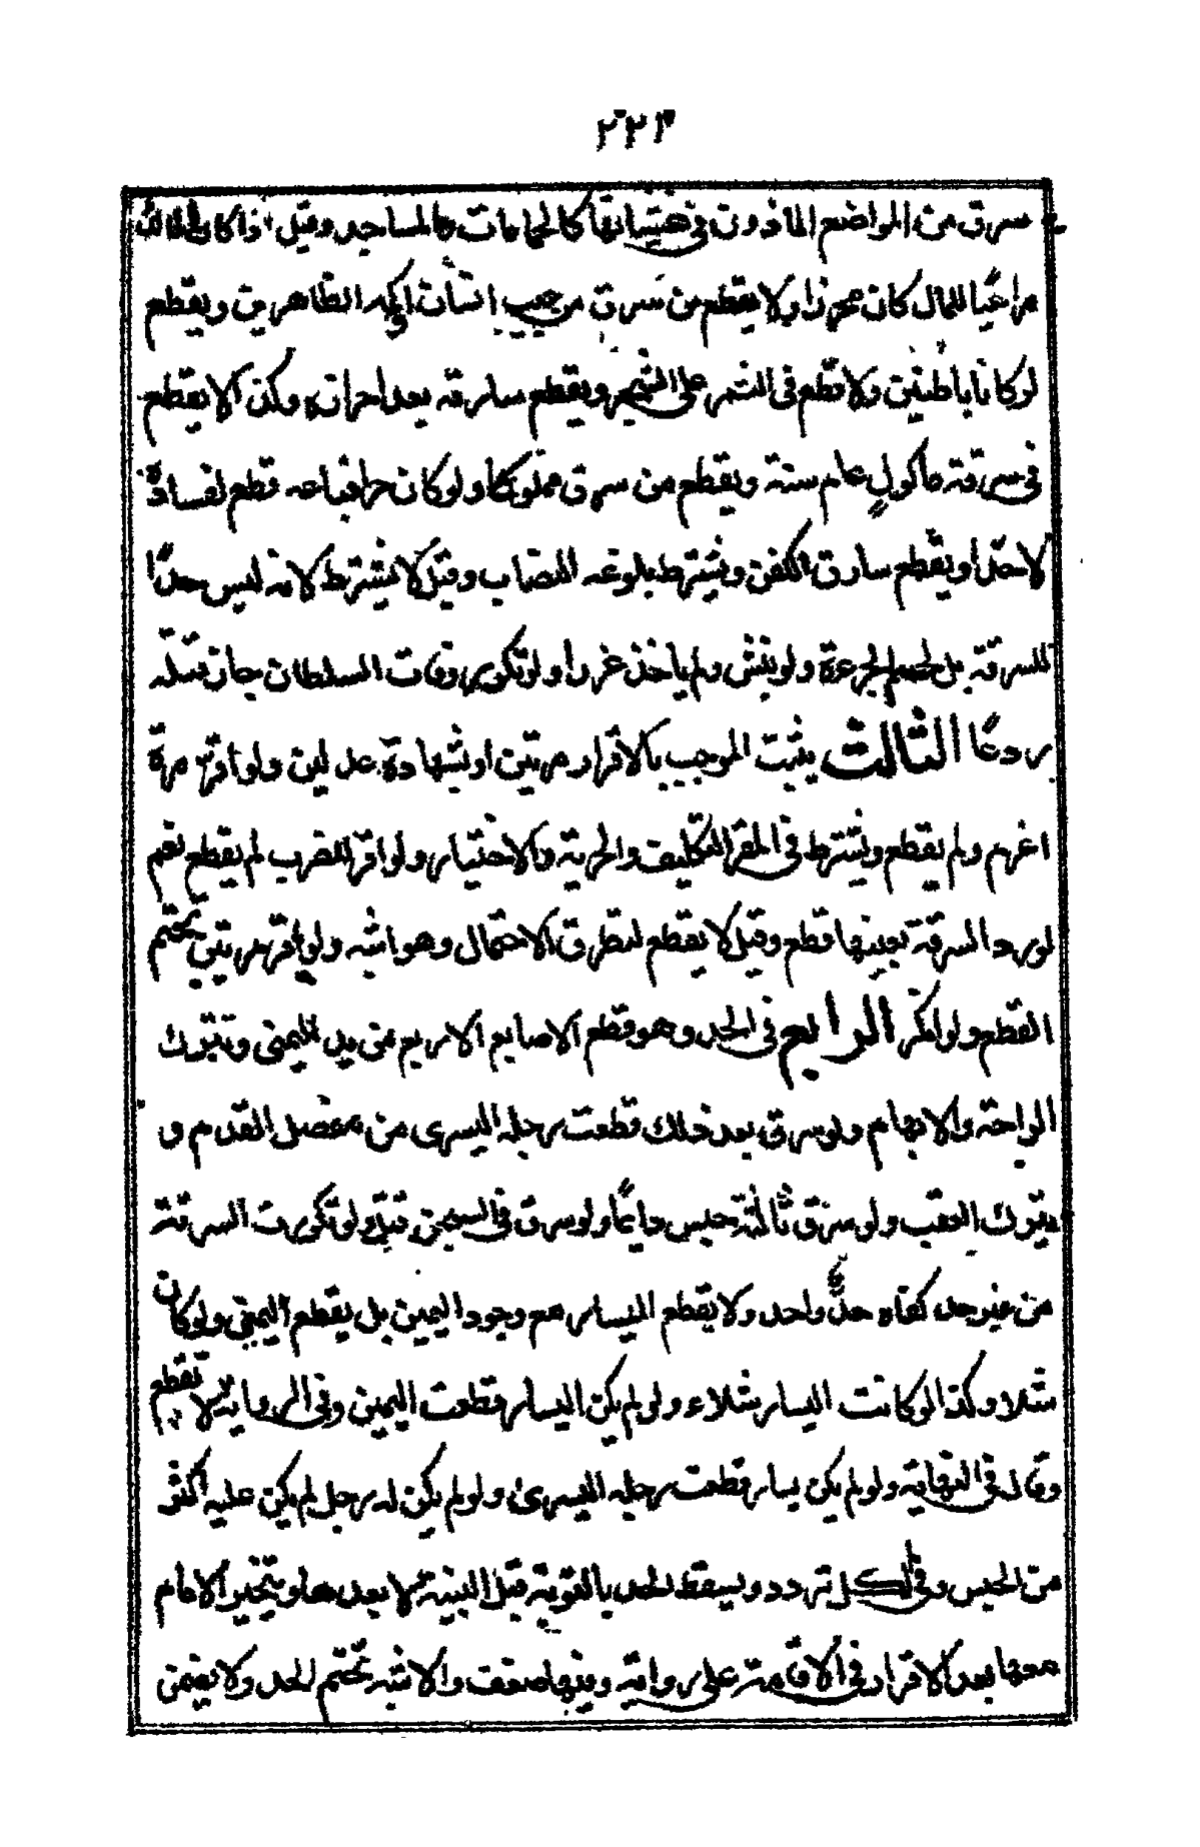 ٢٢١
سرق من المواضع الماذون في غشيانها كالحمامات والمساجد وقيل اذا كان المالك
مراعيا للمال كان محرزا ولا يقطع من سرق من جيب انسان او كمه الظاهرين ويقطع
لو كانا باطنين ولا قطع في الثمر على الشجر ويقطع سارقه بعد احرازه وكذا لا يقطع
في سرقة ماكول عام سنة ويقطع من سرق مملوكا ولو كان حرا فباعه قطع لفساده
لا حدا ويقطع سارق الكفن ويشترط بلوغه النصاب وقيل لا يشترط لانه ليس حد ا
للسرقة بل لحسم الجرءة ولو نبش ولم ياخذ عزر ا ولو تكرر وفات السلطان جاز قتله
ردعا الثالث يثبت الموجب بالاقرار مرتين او بشهادة عدلين ولو اقر مرة
اغرم ولم يقطع ويشترط في المقر التكليف والحرية والاختيار ولو اقر للضرب لم يقطع نعم
لو رد السرقة بعينها قطع وقيل لا يقطع لتطرق الاحتمال وهو اشبه ولو اقر مرتين تحتم
القطع ولو انكر الرابع في الحد وهو قطع الاصابع الاربع من يد اليمنى وتترك
الراحة والابهام ولو سرق بعد ذلك قطعت رجله اليسرى من مفصل القدم و
يترك العقب ولو سرق ثالثة حبس دايما ولو سرق في السجن قتل ولو تكررت السرقة
من غير حد كفاه حد واحد ولا يقطع اليسار مع وجود اليمين بل يقطع اليمنى ولو كان
شلا وكذا لو كانت اليسار شلاء ولو لم يكن اليسار قطعت اليمين وفي الرواية لا تقطع
وقال في النهاية ولو لم يكن يسار قطعت رجله اليسرى ولو لم يكن له رجل لم يكن عليه اكثر
من الحبس وفي الكل تردد ويسقط الحد بالتوبة قبل البينة لا بعدها ويتخير الامام
معها بعد الاقرار في الاقامة على رواية وفيها ضعف والاشبه تحتم الحد ولا يضمن